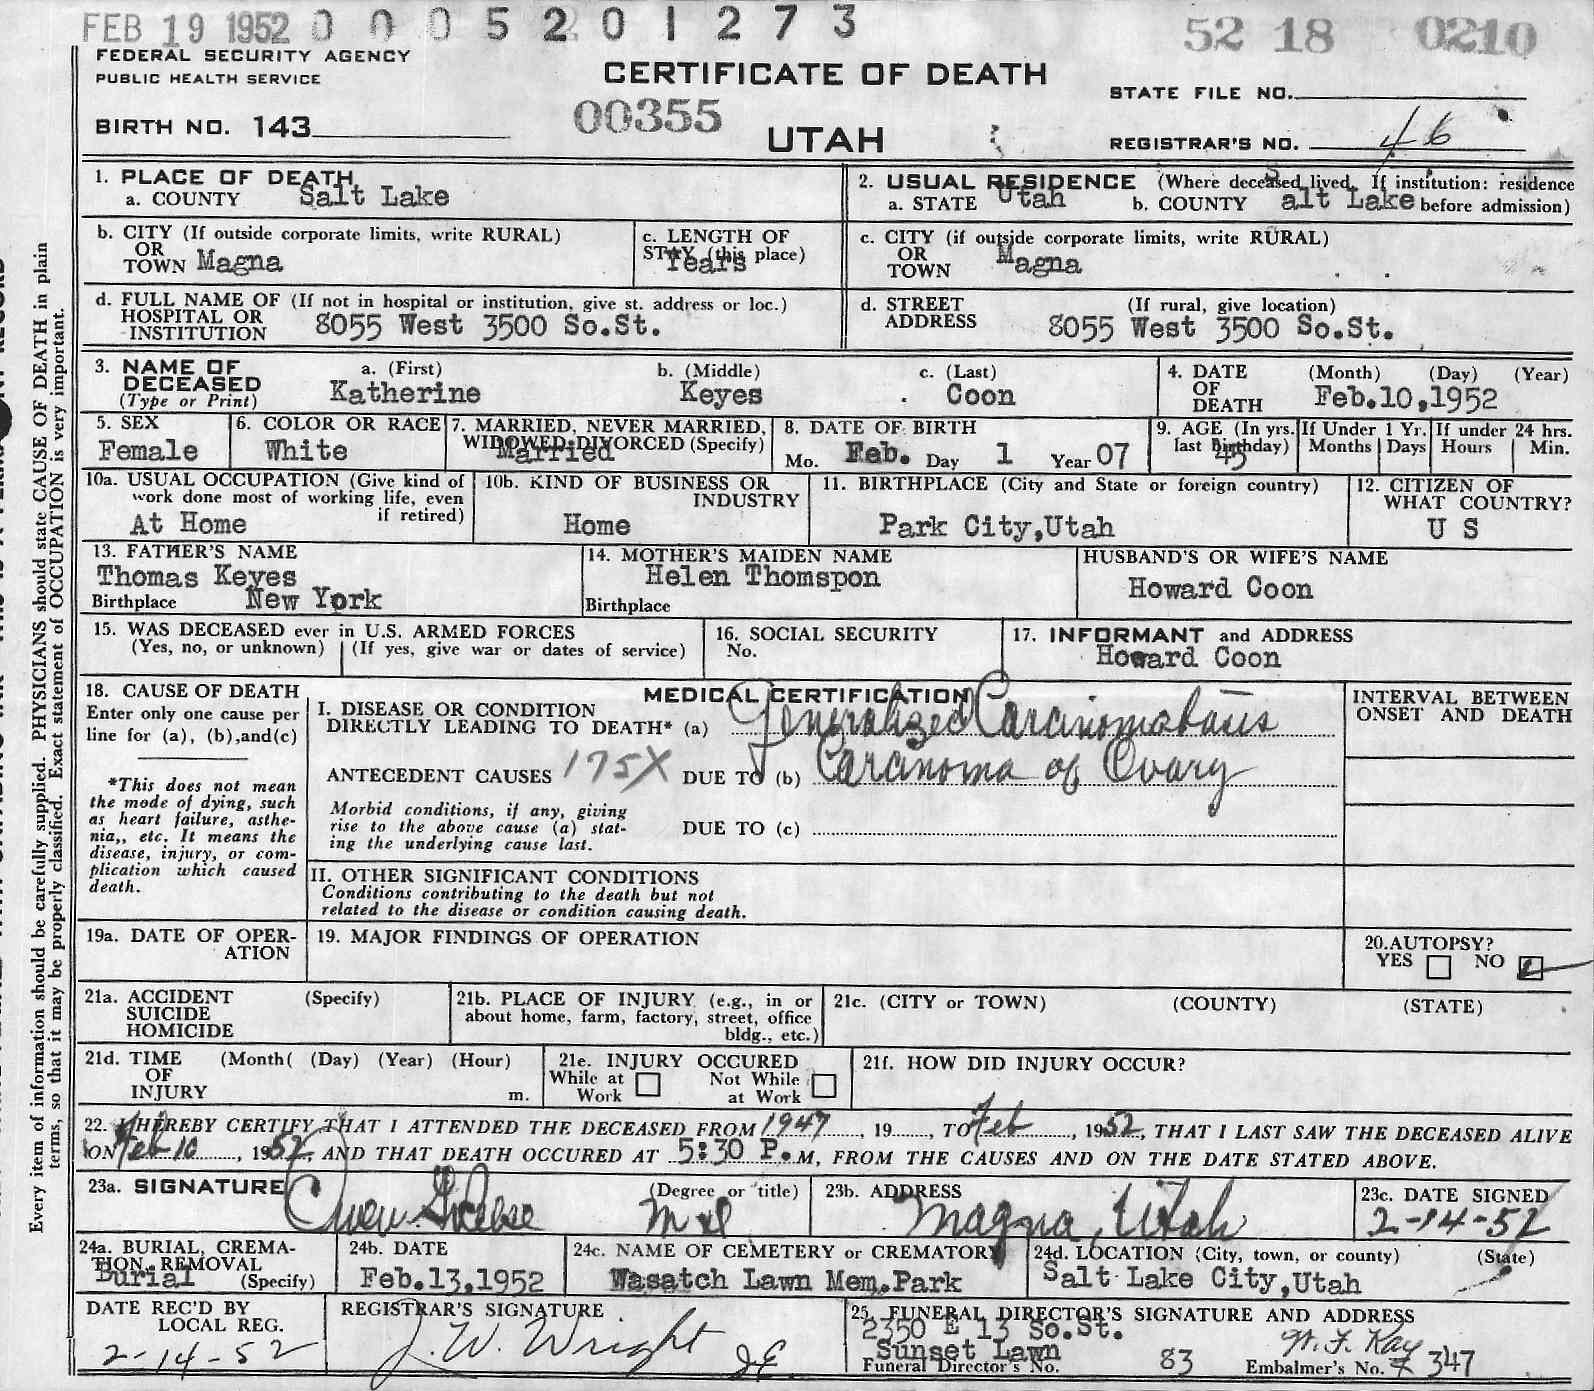 FEB 19 1952 0 0 0 5 2 0 1 2 7 3
52 18 0210
FEDERAL SECURITY AGENCY
PUBLIC HEALTH SERVICE
CERTIFICATE OF DEATH
STATE FILE NO.
BIRTH NO. 143
00355
UTAH
REGISTRAR'S NO. 46
1. PLACE OF DEATH
a. COUNTY Salt Lake
2. USUAL RESIDENCE (Where deceased lived. If institution: residence before admission)
a. STATE Utah b. COUNTY Salt Lake
b. CITY (If outside corporate limits, write RURAL)
OR
TOWN Magna
c. LENGTH OF
STAY (this place)
Years
c. CITY (if outside corporate limits, write RURAL)
OR
TOWN Magna
d. FULL NAME OF (If not in hospital or institution, give st. address or loc.)
HOSPITAL OR
INSTITUTION 8055 West 3500 So.St.
d. STREET (If rural, give location)
ADDRESS 8055 West 3500 So.St.
3. NAME OF
DECEASED
(Type or Print)
a. (First) b. (Middle) c. (Last)
Katherine Keyes Coon
4. DATE (Month) (Day) (Year)
OF
DEATH Feb.10,1952
5. SEX
Female
6. COLOR OR RACE
White
7. MARRIED, NEVER MARRIED,
WIDOWED, DIVORCED (Specify)
Married
8. DATE OF BIRTH
Mo. Feb. Day 1 Year 07
9. AGE (In yrs.
last Birthday)
45
If Under 1 Yr.
Months Days
If under 24 hrs.
Hours Min.
10a. USUAL OCCUPATION (Give kind of
work done most of working life, even
if retired)
At Home
10b. KIND OF BUSINESS OR
INDUSTRY
Home
11. BIRTHPLACE (City and State or foreign country)
Park City,Utah
12. CITIZEN OF
WHAT COUNTRY?
U S
13. FATHER'S NAME
Thomas Keyes
Birthplace New York
14. MOTHER'S MAIDEN NAME
Helen Thomspon
Birthplace
HUSBAND'S OR WIFE'S NAME
Howard Coon
15. WAS DECEASED ever in U.S. ARMED FORCES
(Yes, no, or unknown) (If yes, give war or dates of service)
16. SOCIAL SECURITY
No.
17. INFORMANT and ADDRESS
Howard Coon
18. CAUSE OF DEATH
Enter only one cause per
line for (a), (b),and(c)
*This does not mean
the mode of dying, such
as heart failure, asthe-
nia,, etc. It means the
disease, injury, or com-
plication which caused
death.
MEDICAL CERTIFICATION
I. DISEASE OR CONDITION
DIRECTLY LEADING TO DEATH* (a) Generalized Carcinomatosis
ANTECEDENT CAUSES 175X DUE TO (b) Carcinoma of Ovary
Morbid conditions, if any, giving
rise to the above cause (a) stat-
ing the underlying cause last.
DUE TO (c)
INTERVAL BETWEEN
ONSET AND DEATH
II. OTHER SIGNIFICANT CONDITIONS
Conditions contributing to the death but not
related to the disease or condition causing death.
19a. DATE OF OPER-
ATION
19. MAJOR FINDINGS OF OPERATION
20.AUTOPSY?
YES NO
21a. ACCIDENT (Specify)
SUICIDE
HOMICIDE
21b. PLACE OF INJURY (e.g., in or
about home, farm, factory, street, office
bldg., etc.)
21c. (CITY or TOWN) (COUNTY) (STATE)
21d. TIME (Month( (Day) (Year) (Hour)
OF
INJURY m.
21e. INJURY OCCURED
While at Work Not While at Work
21f. HOW DID INJURY OCCUR?
22. I HEREBY CERTIFY THAT I ATTENDED THE DECEASED FROM 1947, 19, TO Feb, 1952, THAT I LAST SAW THE DECEASED ALIVE
ON Feb 10, 1952, AND THAT DEATH OCCURED AT 5:30 P.M, FROM THE CAUSES AND ON THE DATE STATED ABOVE.
23a. SIGNATURE (Degree or title)
Owen MD
23b. ADDRESS
Magna, Utah
23c. DATE SIGNED
2-14-52
24a. BURIAL, CREMA-
TION, REMOVAL
Burial (Specify)
24b. DATE
Feb.13,1952
24c. NAME OF CEMETERY or CREMATORY
Wasatch Lawn Mem.Park
24d. LOCATION (City, town, or county) (State)
Salt Lake City,Utah
DATE REC'D BY
LOCAL REG.
2-14-52
REGISTRAR'S SIGNATURE
J. W. Wright
25. FUNERAL DIRECTOR'S SIGNATURE AND ADDRESS
2350 E 13 So.St.
Sunset Lawn
W. F. Kay
Funeral Director's No. 83 Embalmer's No. 347
Every item of information should be carefully supplied. PHYSICIANS should state CAUSE OF DEATH in plain
terms, so that it may be properly classified. Exact statement of OCCUPATION is very important.